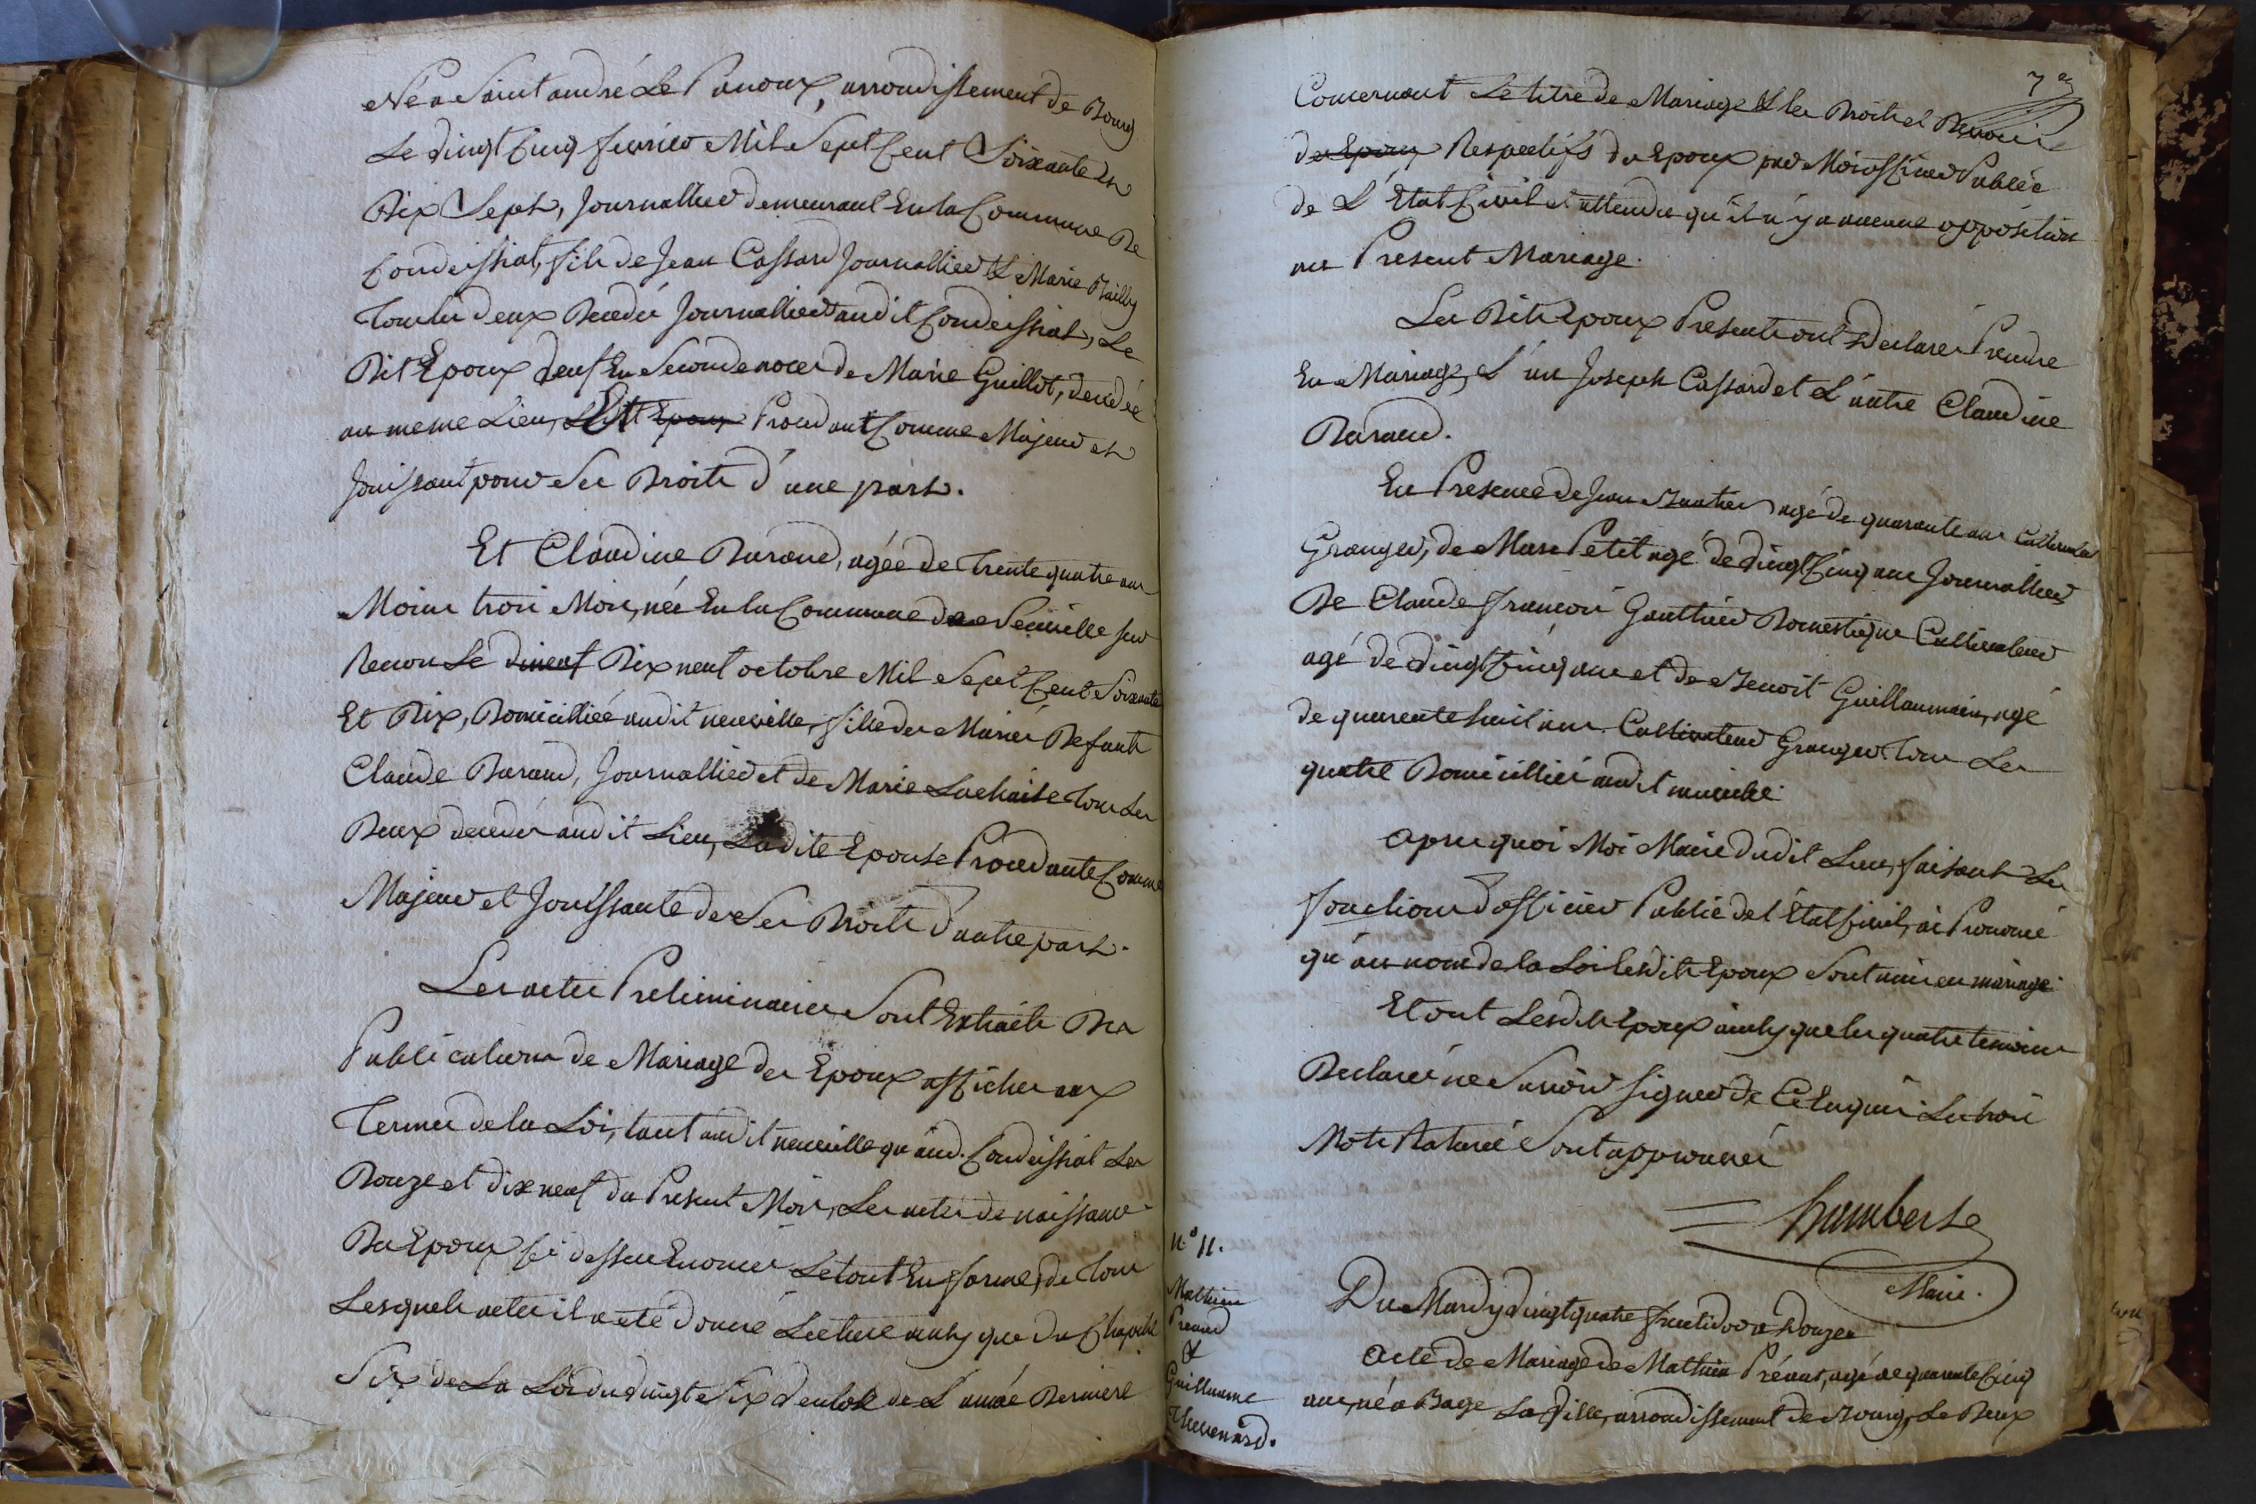 né a Saint andré Le Panoux, arrondissement de Bourg
Le vingt Cinq fevrier Mil Sept Cent Soixante et
Dix Sept, Journallier demeurant En la Commune De
Condeissiat, fils de Jean Cassard Journallier & Marie Bailly
Tous les deux Decedés Journalliers audit Condeissiat, Le
Dit Epoux veuf En Seconde noces de Marie Guillot, decedée
au meme Lieu, Procedant Comme Majeur et
Jouissant pour Ses Droits d'une part.
Et Claudine Durand, agée de Trente quatre ans
Moins trois Mois, née En la Commune de Neuville sur
Renon Le Dix neuf octobre Mil Sept Cent Soixante
Et Dix, Domicilliée audit neuville, fille des Mariés Defunts
Claude Durand, Journallier et de Marie Lachaise Tous Les
Deux decedés audit Lieu, Ladite Epouse Procedante Comme
Majeur et Jouissante de Ses Droits d'autre part.
Les actes Preliminaires Sont Extraits Des
Publications de Mariage des Epoux affichés aux
Termes de la Loi, tant audit neuville qu'aud. Condeissiat Les
Douze et dix neuf du Present Mois, Les actes de naissance
Des Epoux Ci dessus Enoncés Le tout En forme, de Tous
Lesquels actes il a eté donné Lecture ainsy que du Chapitre
Six de La Loi du vingt Six ventose de L'année Derniere
7
Concernant Le titre de Mariage & les Droits et Devoirs
des Epoux Respectifs des Epoux par Moi officier Public
de L'Etat Civil et attendu qu'il n'y a aucune opposition
au Present Mariage.
Les Dits Epoux Presents ont Declarés Prendre
En Mariage, L'un Joseph Cassard et L'autre Claudine
Durand.
En Presence de Jean agé de quarante ans Cultivateur
Granger, de Marc Petit agé de vingt Cinq ans Journallier
De Claude françois Gauthier Domestique Cultivateur
agé de vingt Cinq ans et de Benoit Guillaumain, agé
de quarente huit ans Cultivateur Granger Tous Les
quatre Domicilliés audit neuville.
apres quoi Moi Maire dudit Lieu, faisant Les
fonctions d'officier Public de l'Etat Civil, ai Prononcé
qu'au nom de la Loi lesdits Epoux Sont unis en mariage.
Et ont Lesdits Epoux ainsy que les quatre temoins
Declarés ne Savoir Signer de Ce Enquis Les trois
Mots Raturés Sont approuvés
humbert
Maire.
n.º 11.
Mathieu
Prévend
&
Guillaume
Thevenard.
Du Mardy vingt quatre fructidor an Douze
acte de Mariage de Mathieu agé de quarente Cinq
ans, né a Bagé La Ville, arrondissement de Bourg, Le Deux